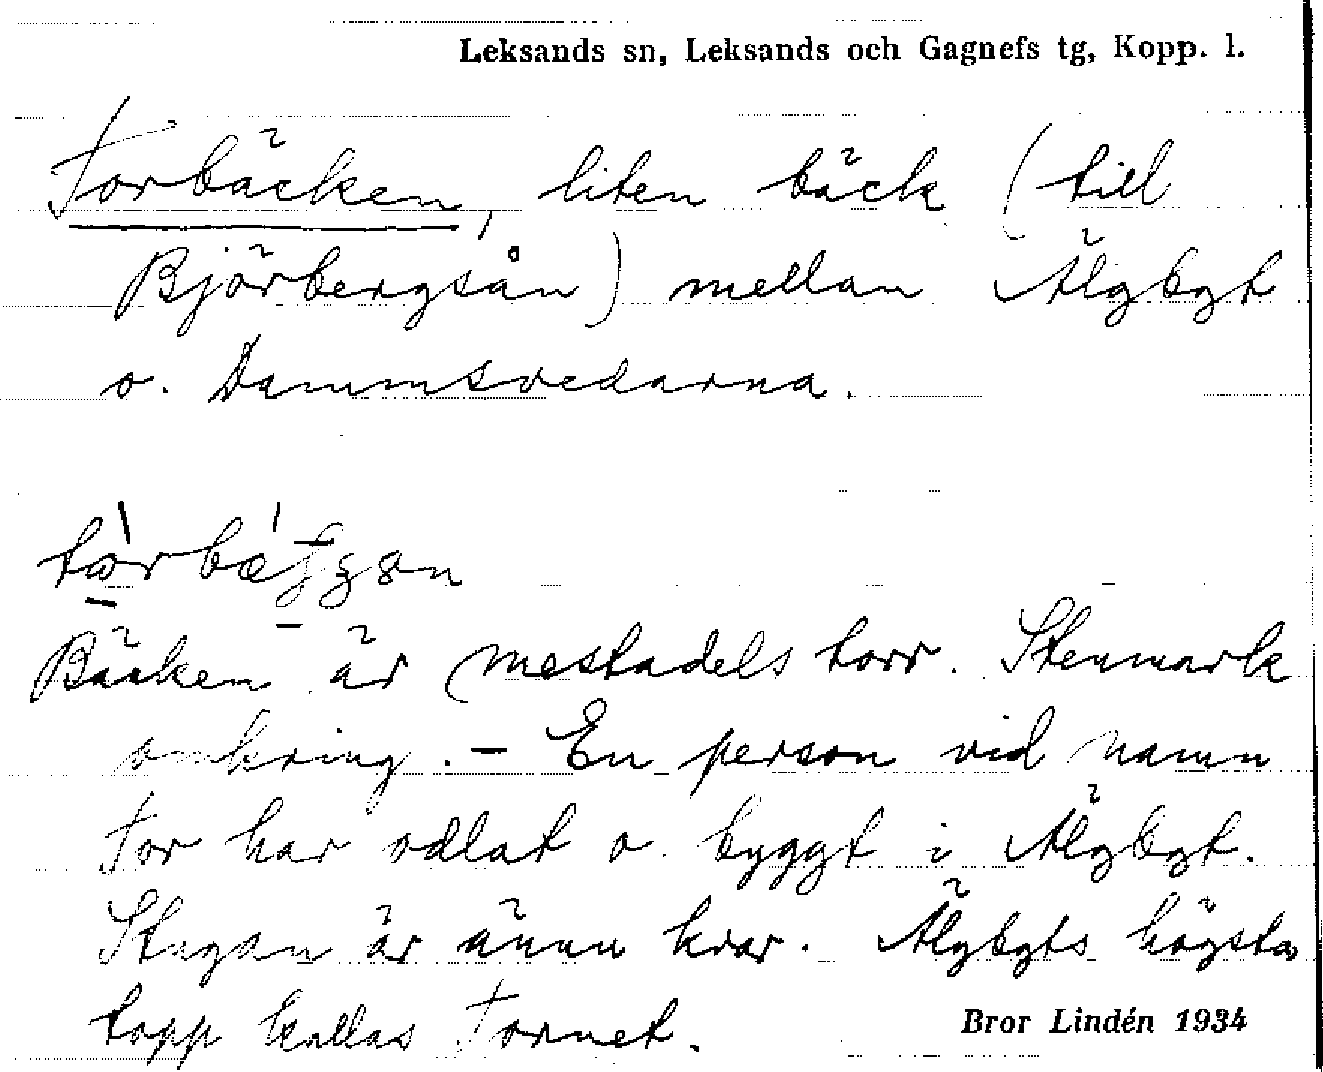 Leksands sn, Leksands och Gagnefs tg, Kopp. l.
Torbäcken, liten bäck (till
Björbergsån) mellan Älgbyt
o. Dammsvedarna.
Bäcken är mestadels torr. Stenmark
omkring. – En person vid namn
Tor har odlat o. byggt i Älgbyt.
Stugan är ännu kvar. Älgbyts högsta
topp kallas Tornet.
Bror Lindén 1934